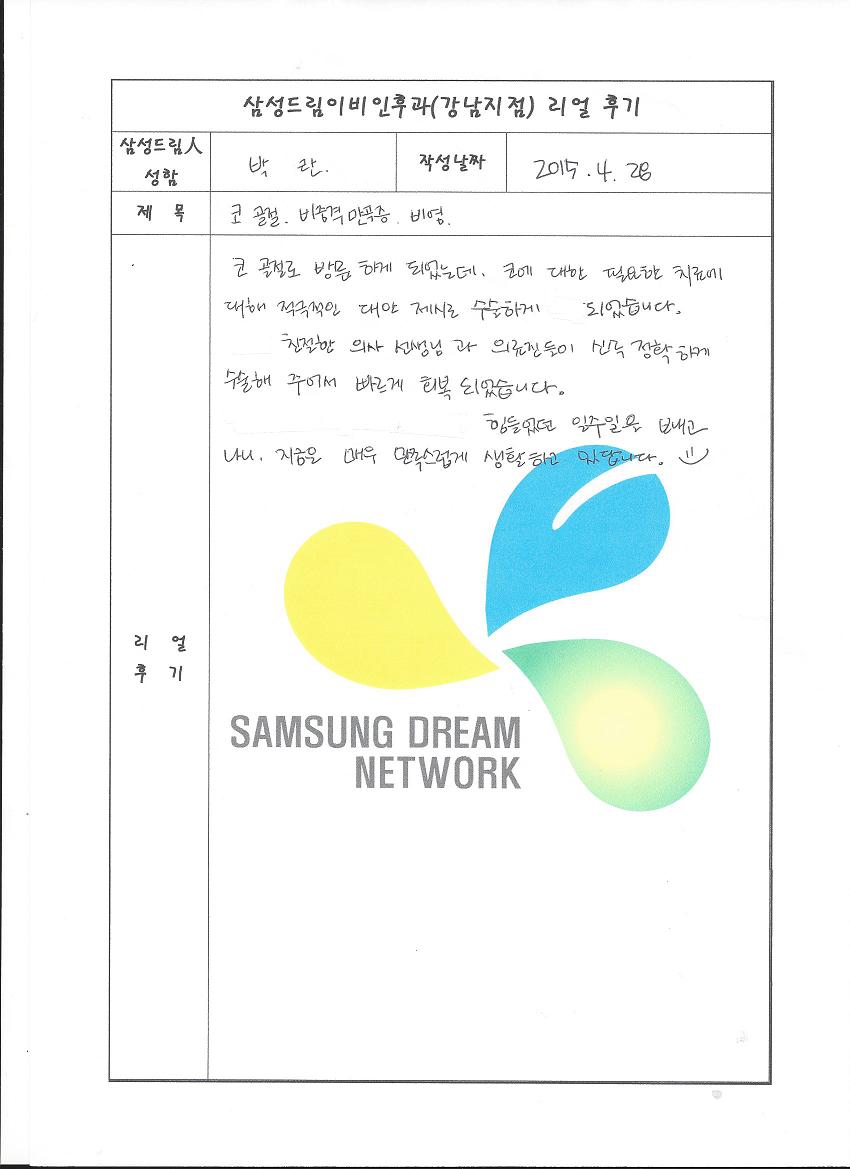 삼성드림이비인후과(강남지점) 리얼 후기
삼성드림人
성함
박 관.
작성날짜
2015. 4. 28
제 목
코 골절. 비중격만곡증. 비염.
코 골절로 방문 하게 되었는데. 코에 대한 필요한 치료에
대해 적극적인 대안 제시로 수술하게 되었습니다.
친절한 의사 선생님 과 의료진들이 신속 정확하게
수술해 주어서 빠르게 회복 되었습니다.
힘들었던 일주일을 보내고
나니. 지금은 매우 만족스럽게 생활하고 있답니다.
리 얼
후 기
SAMSUNG DREAM
NETWORK